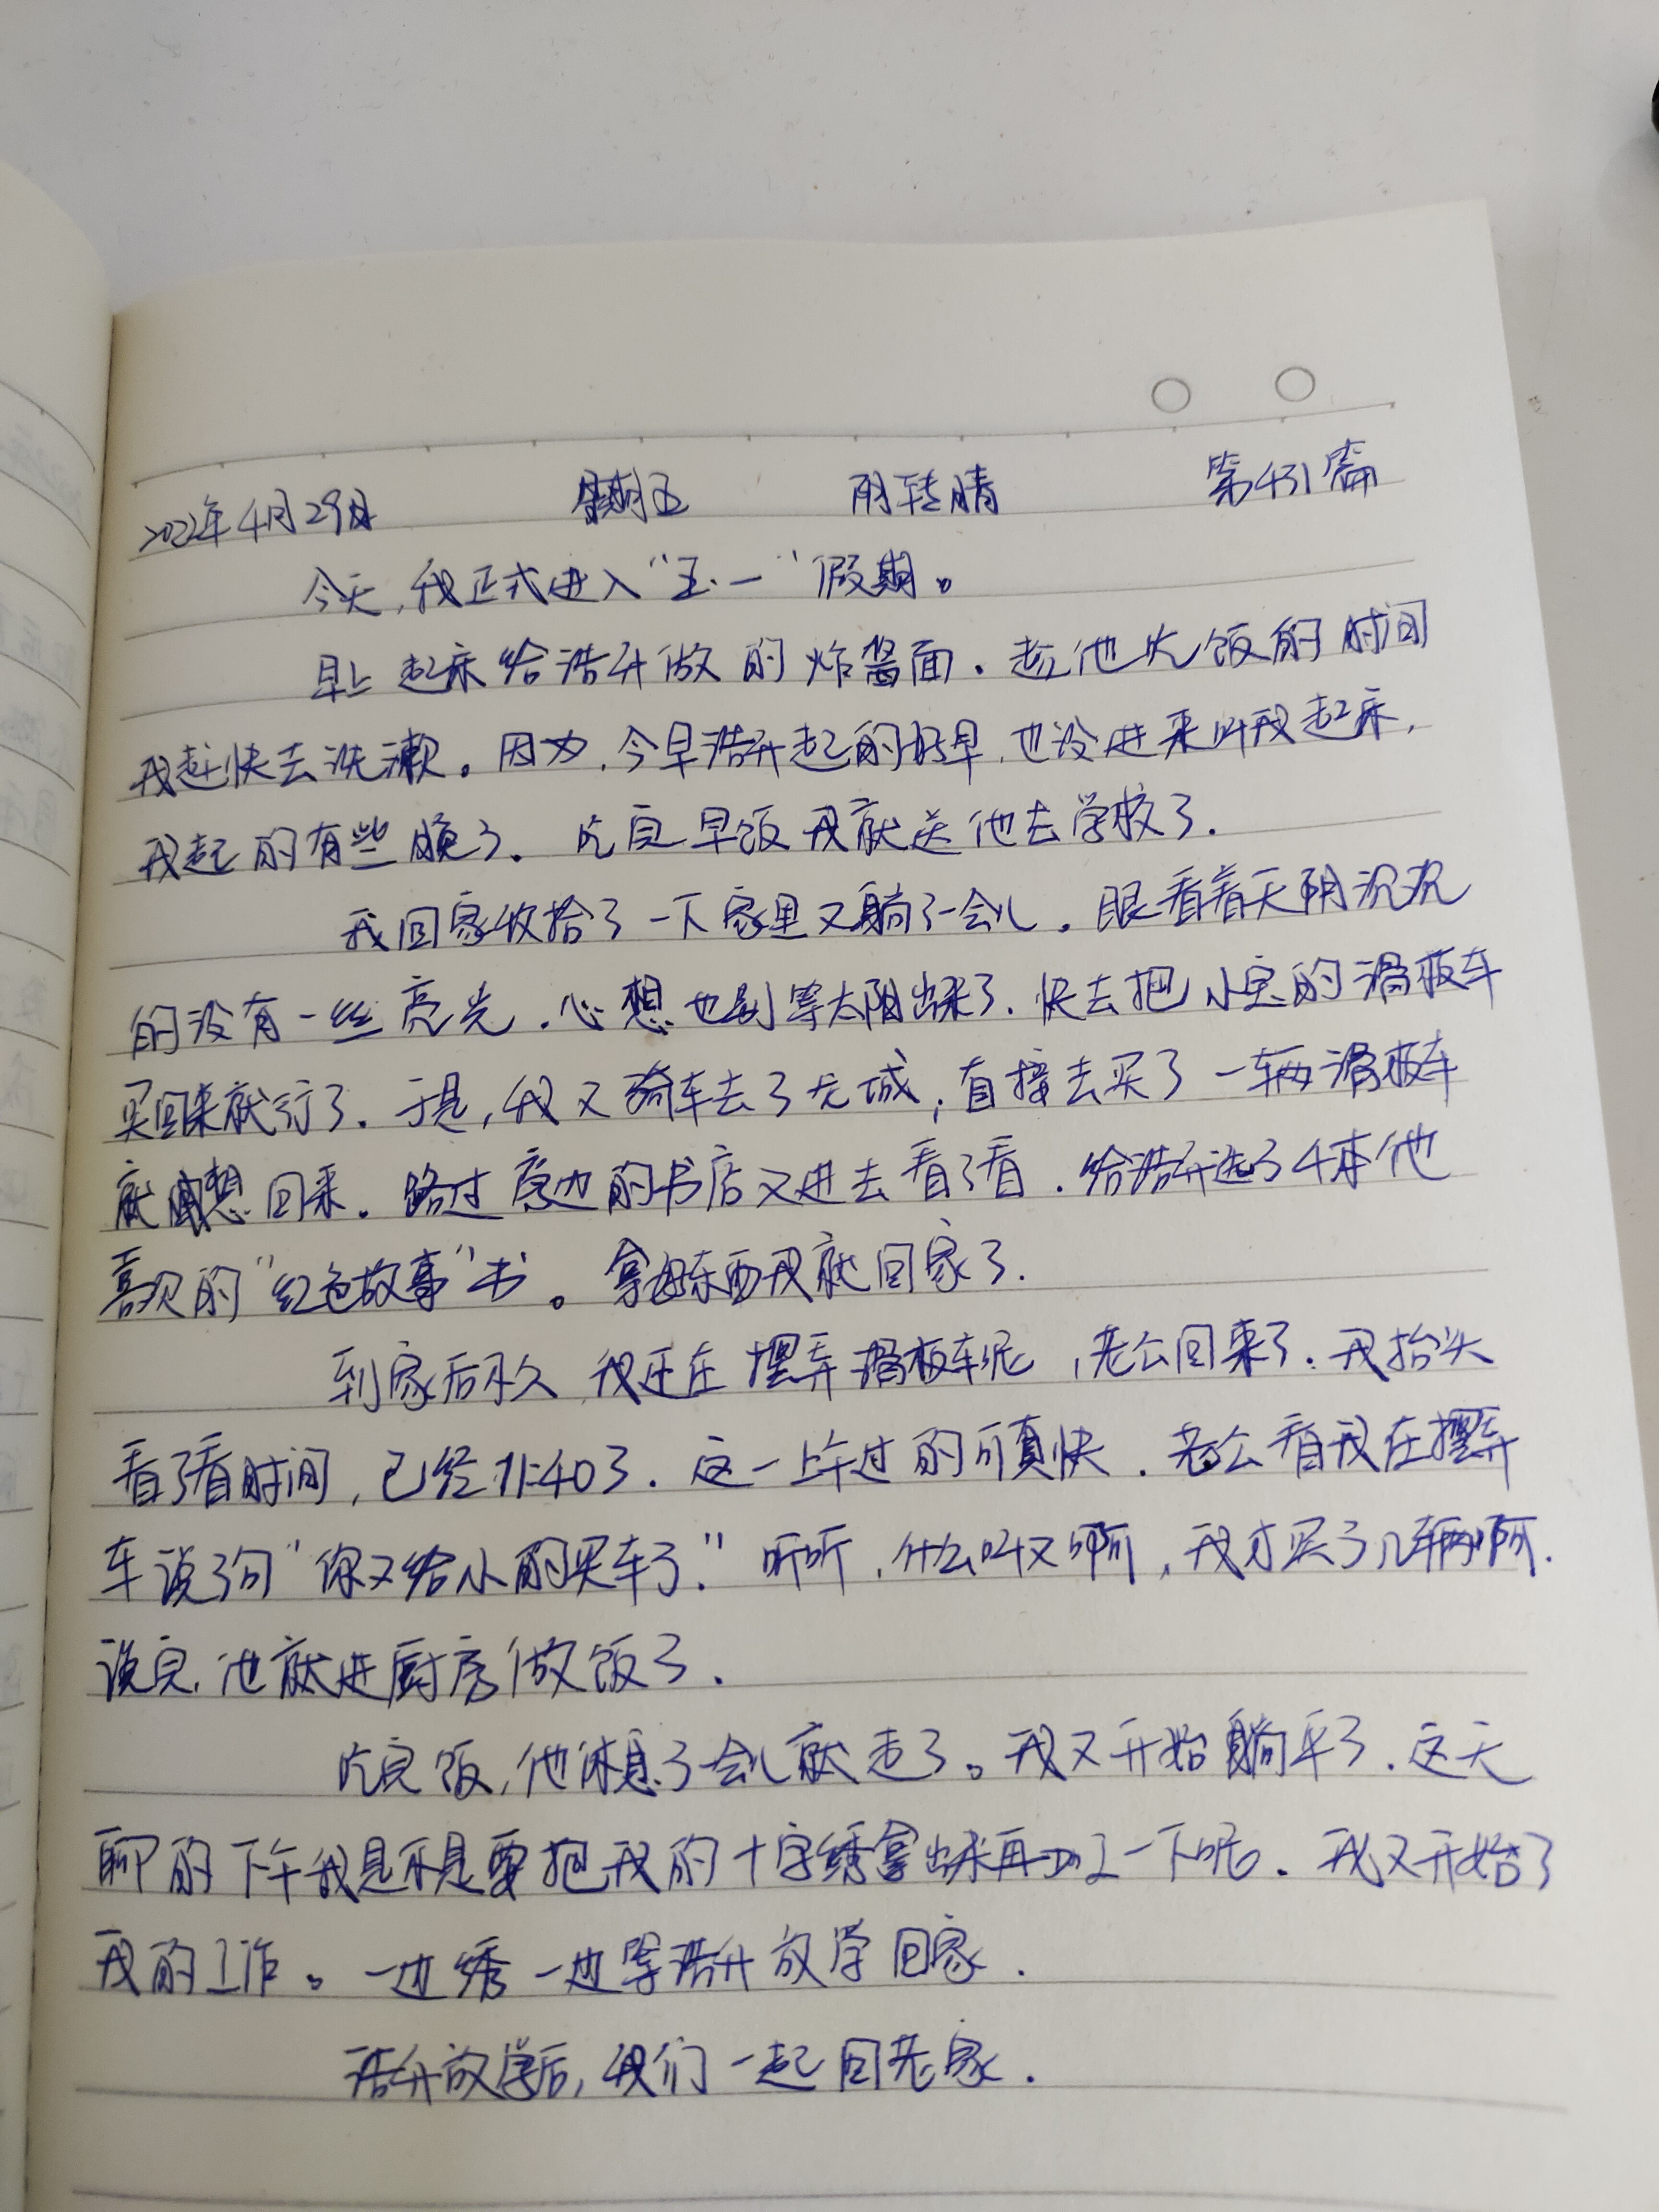 2022年4月29日 星期五 阴转晴 第431篇
今天,我正式进入“五·一”假期。
早上起床给浩升做的炸酱面.趁他吃饭的时间
我赶快去洗漱。因为,今早浩升起的好早,也没进来叫我起床,
我起的有些晚了.吃完早饭我就送他去学校了.
我回家收拾了一下家里又躺了一会儿.眼看着天阴沉沉
的没有一丝亮光.心想也别等太阳出来了.快去把小宝的滑板车
买回来就行了.于是,我又骑车去了无城,直接去买了一辆滑板车
就想回来.路过旁边的书店又进去看了看.给浩升选了4本他
喜欢的“红色故事”书。拿好东西我就回家了.
到家后不久,我还在摆弄滑板车呢,老公回来了.我抬头
看了看时间,已经11:40了.这一上午过的可真快.老公看我在摆弄
车说了句“你又给小的买车了.”听听,什么叫又啊,我才买了几辆啊.
说完,他就进厨房做饭了.
吃完饭,他休息了会儿就走了。我又开始躺平了.这无
聊的下午我是不是要把我的十字绣拿出来再加工一下呢.我又开始了
我的工作。一边绣一边等浩升放学回家.
浩升放学后,我们一起回老家.